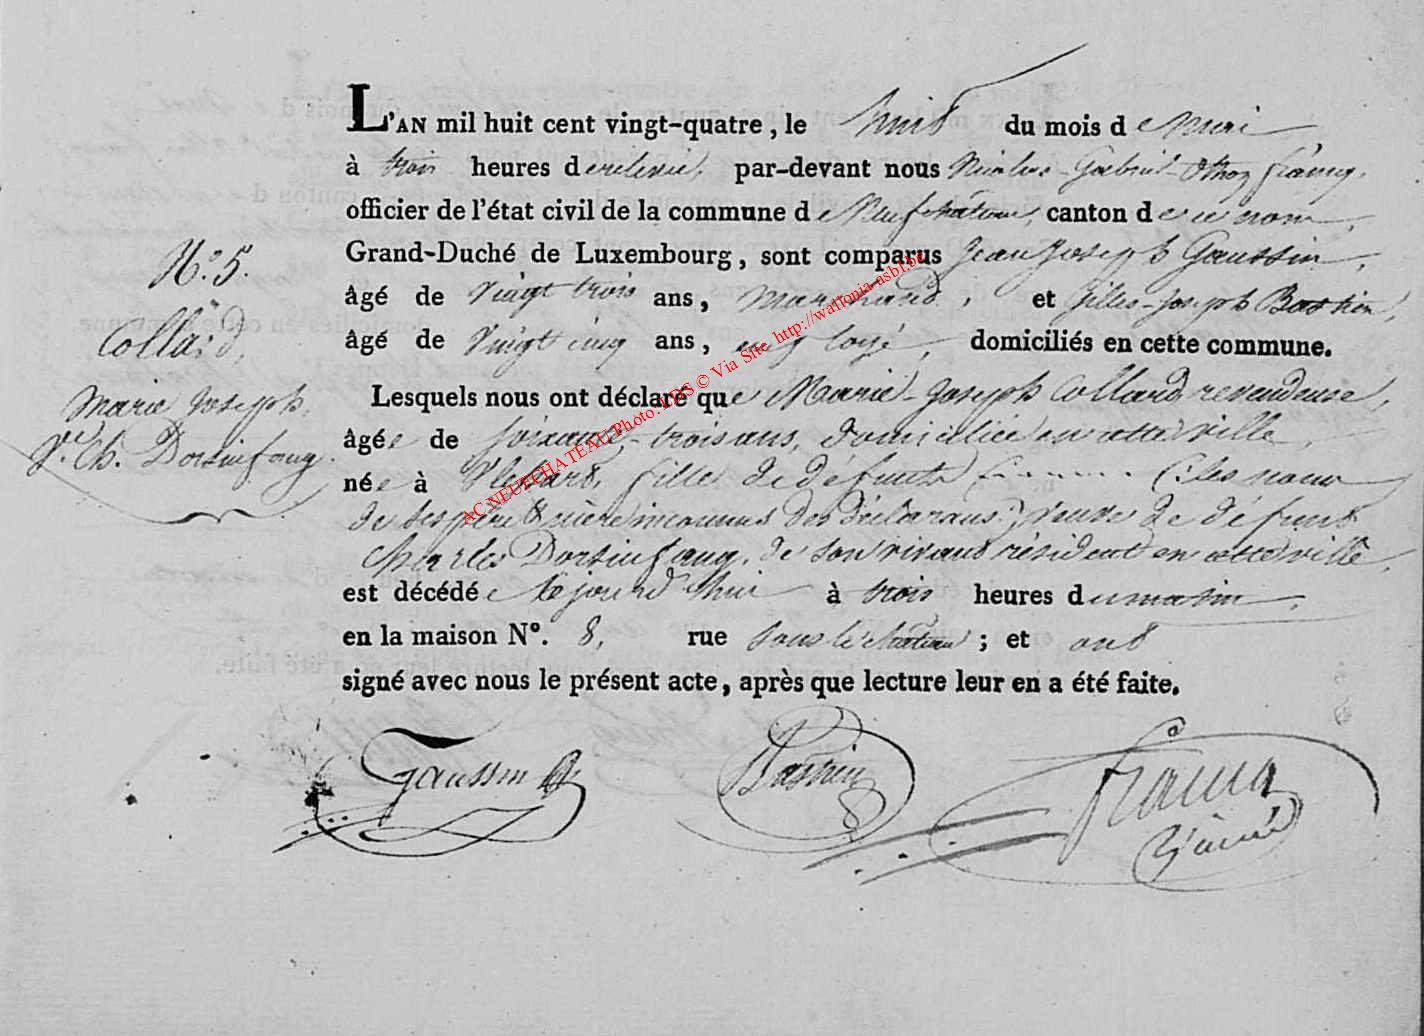 L'AN mil huit cent vingt-quatre, le huit du mois de mai
à trois heures de relevé, par-devant nous Nicolas-Gabriel
officier de l'état civil de la commune de Neufchâteau, canton de ce nom,
Grand-Duché de Luxembourg, sont comparus Jean Joseph Gaussin,
âgé de vingt trois ans, marchand, et Gilles-Joseph Bastien,
âgé de vingt cinq ans, employé, domiciliés en cette commune.
Lesquels nous ont déclaré que Marie-Joseph Collard revendeuse,
âgée de soixante-trois ans, domiciliée en cette ville
née à fille de défunts (: les noms
de ses père & mère inconnus des déclarans :) veuve de défunt
Charles Dorsinfang, de son vivant résident en cette ville,
est décédée le jourd'hui à trois heures du matin,
en la maison N°. 8, rue sous le château ; et ont
signé avec nous le présent acte, après que lecture leur en a été faite.
N° 5.
Collard,
Marie Joseph,
Ve. Ch. Dorsinfang.
Gaussin
Bastien
AC NEUFCHATEAU Photo. LDS © Via Site http://wallonia-asbl.be